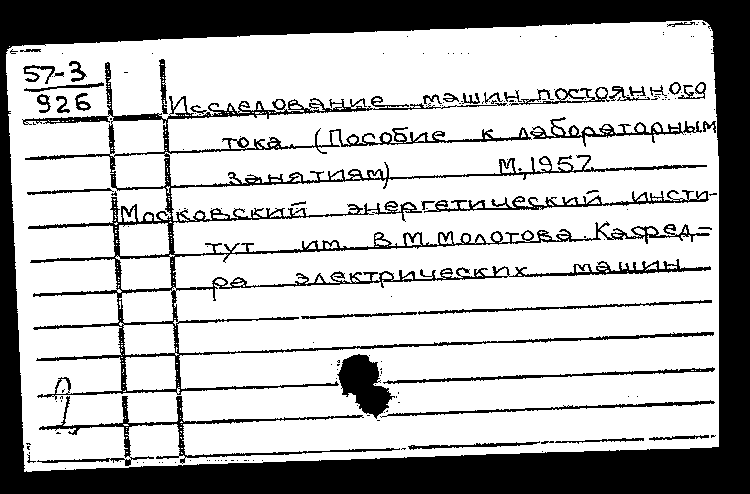 57-3
926
Исследование машин постоянного
тока. (Пособие к лабораторным
занятиям) М., 1957.
Московский энергетический инсти-
тут им. В.М. Молотова. Кафед-
ра электрических машин